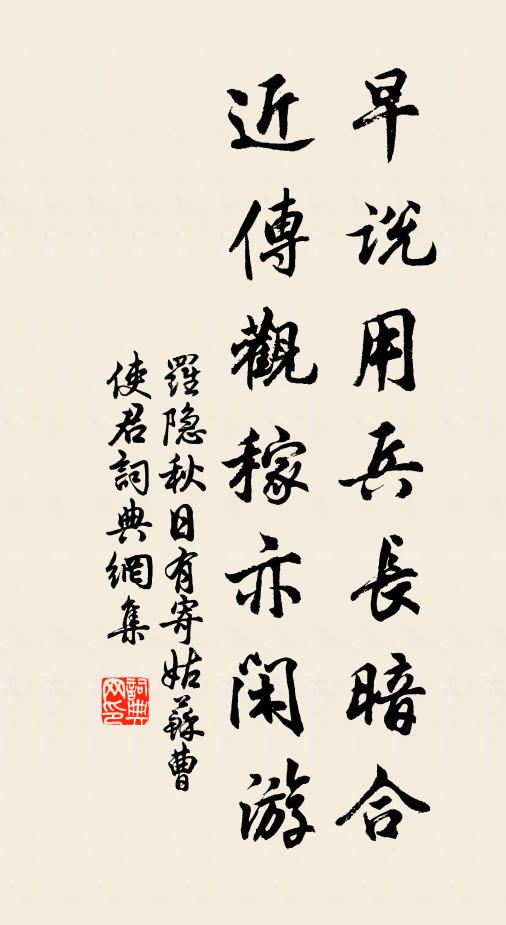 早説用兵長暗合
近傳觀稼亦閑游
羅隐秋日有寄姑蘇曹
使君詞典網集
詞典
网印